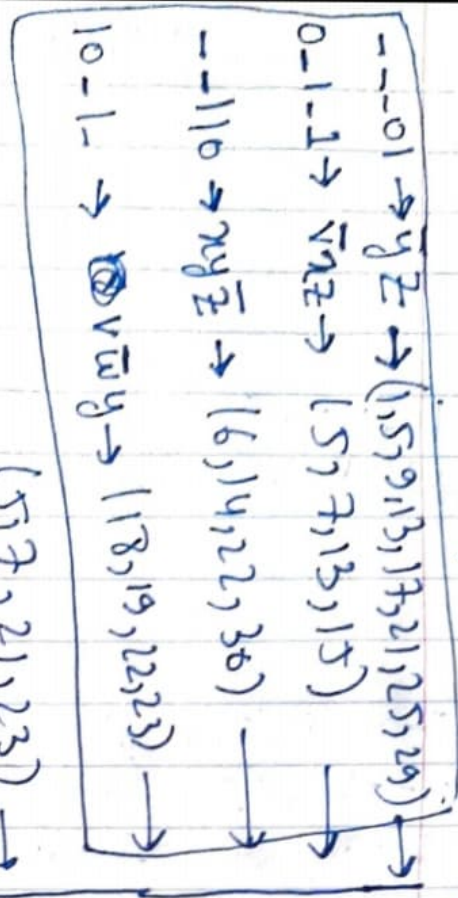 - - - 01 → y̅z → (1,5,9,13,17,21,25,29) →
0-1-1 → v̅xz → (5,7,13,15) →
--110 → xyz̅ → (6,14,22,30) →
10-1- → vw̅y → (18,19,22,23) →
(5,7,21,23) →